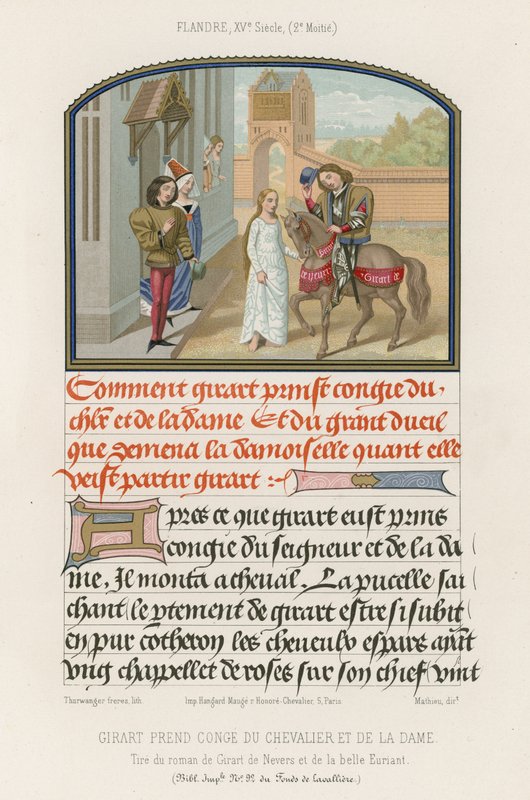 FLANDRE, XVe Siècle, (2e Moitié.)
Girart de
Comment girart prinst congie du
chlr et de la dame Et du grant dueil
que demena la damoiselle quant elle
veist partir girart :~
Apres ce que girart eust prins
congie du seigneur et de la da
me, Il monta a cheual. La pucelle sai
chant le ptement de girart estre si subit
en pur cotheron les cheueulx espars aiant
vng chappellet de roses sur son chief vint
Thurwanger freres, lith. Imp. Hangard Maugé r Honoré-Chevalier, 5, Paris. Mathieu, dirt.
GIRART PREND CONGE DU CHEVALIER ET DE LA DAME.
Tiré du roman de Girart de Nevers et de la belle Euriant.
(Bibl. Imple No. 92 du Fonds de Lavallière.)